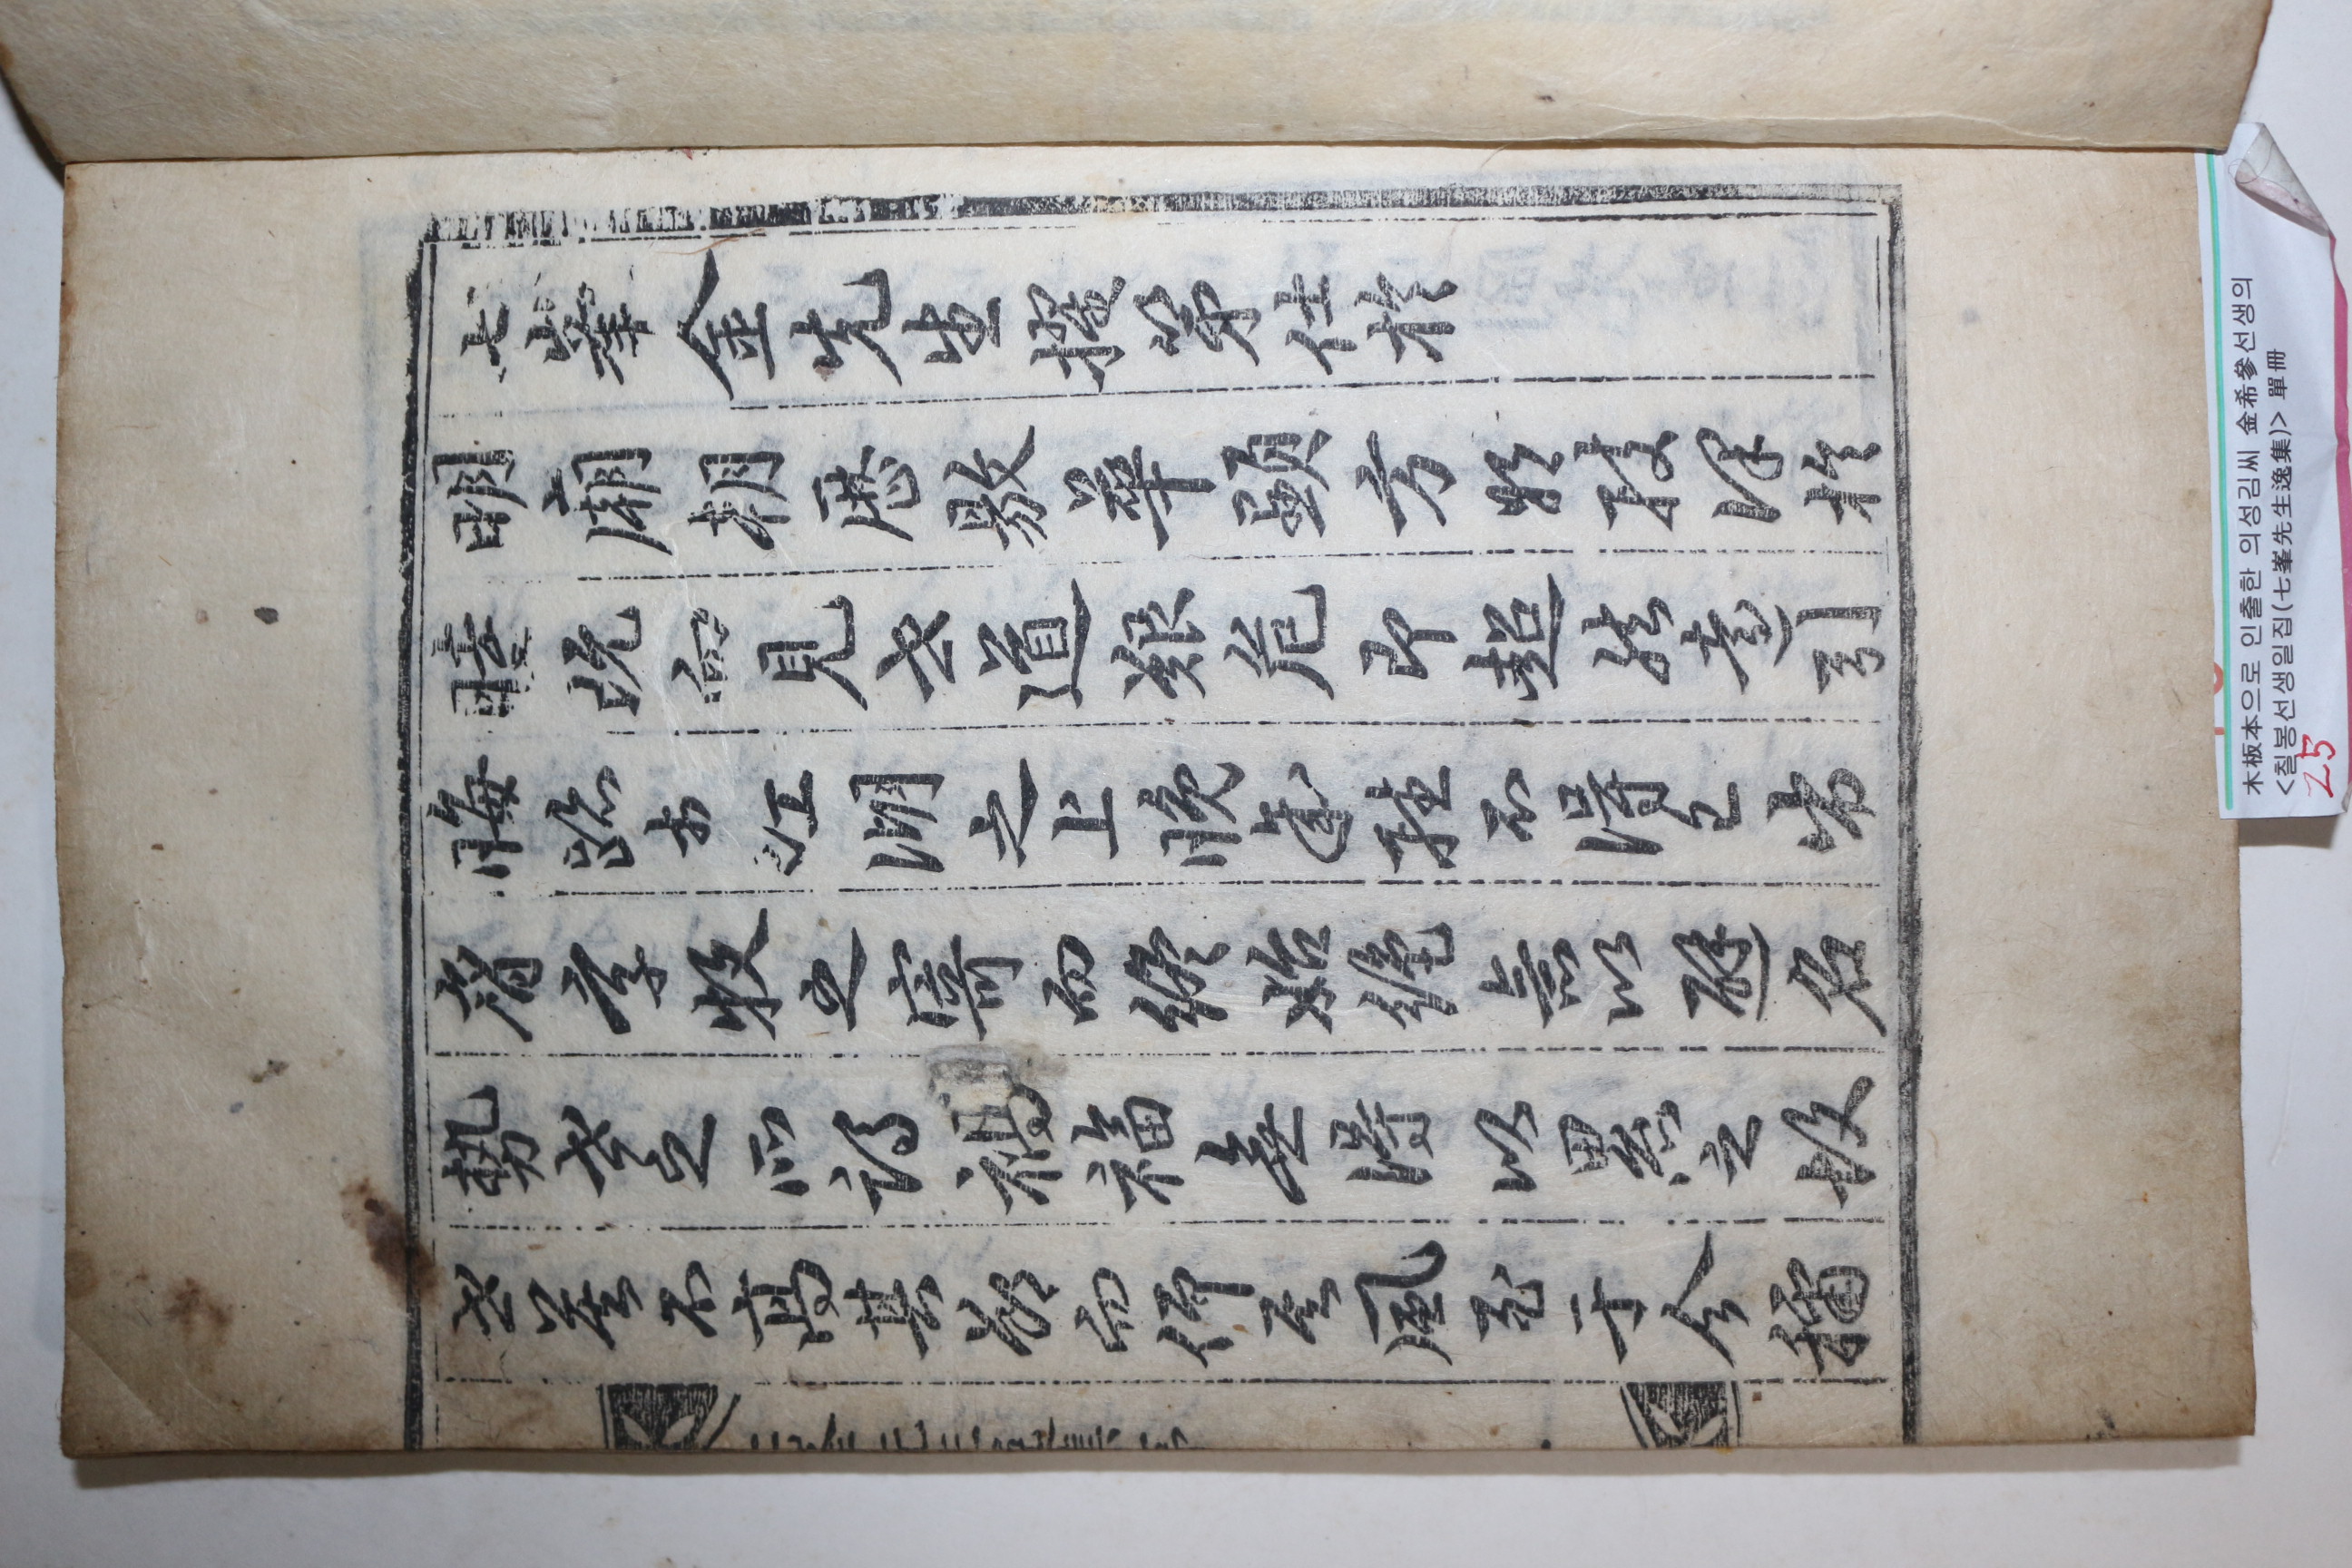 七峯金先生擢第仕於
明廟朝歷敭華顯方 於
既而見世道艱危即超然遠引
晦跡於江湖之上晩年雖不得已
膺字牧之寄而終始絶意以避名
勢世之所謂禍福無得以累之故
世莫不高其節而仰其風至于今稱
木板本으로 인출한 의성김씨 金希參선생의
<칠봉선생일집(七峯先生逸集)> 單冊
25